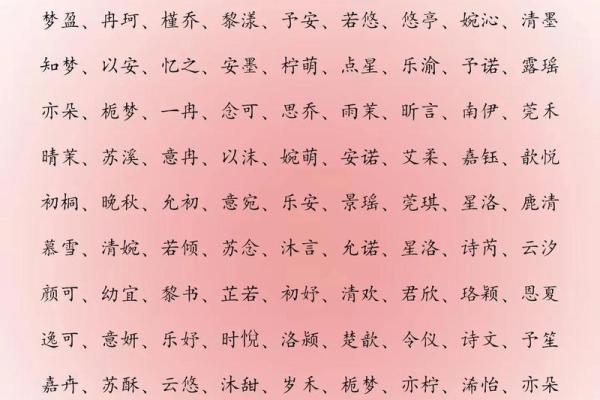 梦盈、冉珂、槿乔、黎漾、予安、若悠、悠亭、婉沁、清墨
知梦、以安、忆之、安墨、柠萌、点星、乐渝、予诺、露瑶
亦朵、栀梦、一冉、念可、思乔、雨茉、昕言、南伊、莞禾
晴茉、苏溪、意冉、以沫、婉萌、安诺、艾柔、嘉钰、歆悦
初桐、晚秋、允初、意宛、乐安、景瑶、莞琪、星洛、鹿清
慕雪、清婉、若倾、苏念、沐言、允诺、星洛、诗芮、云汐
颜可、幼宜、黎书、芷若、初妤、清欢、君欣、珞颖、恩夏
逸可、意妍、乐妤、时悦、洛颍、楚歆、令仪、诗文、予笙
嘉卉、苏酥、云悠、沐甜、岁禾、栀梦、亦柠、浠怡、亦朵